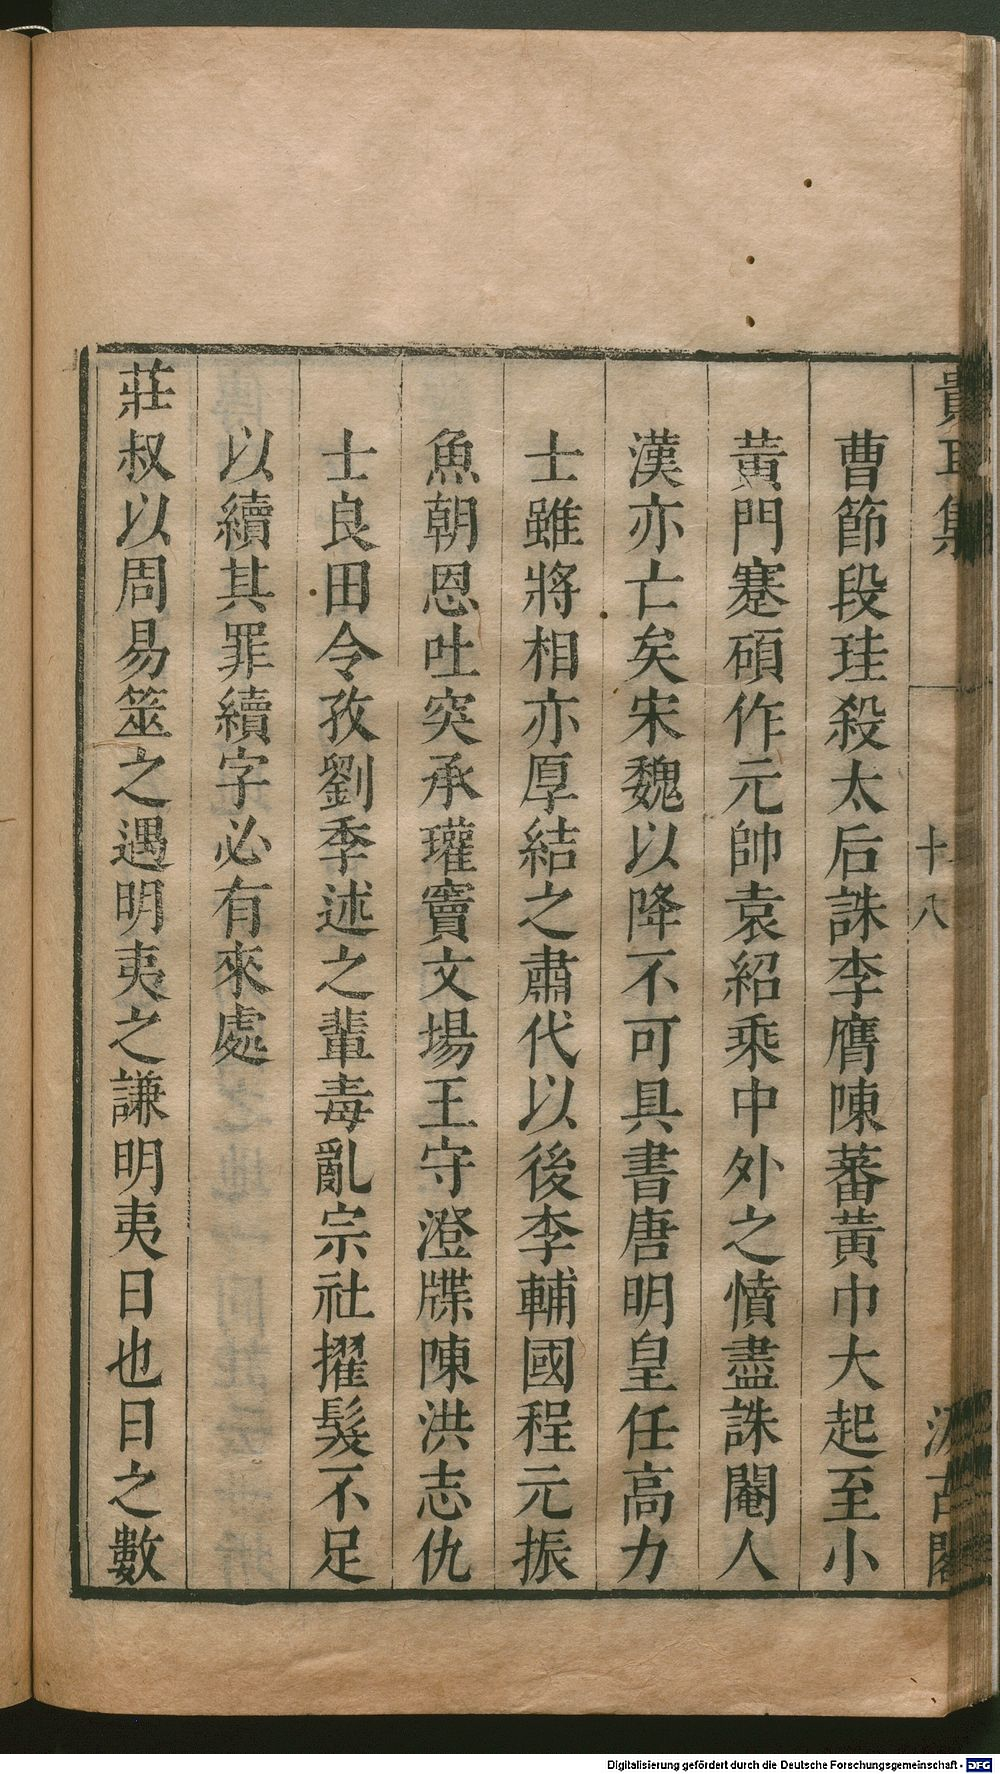 貴耳集 十八 汲古閣
曹節段珪殺太后誅李膺陳蕃黃巾大起至小
黃門蹇碩作元帥袁紹乘中外之憤盡誅閹人
漢亦亡矣宋魏以降不可具書唐明皇任高力
士雖將相亦厚結之肅代以後李輔國程元振
魚朝恩吐突承瓘竇文場王守澄牒陳洪志仇
士良田令孜劉季述之輩毒亂宗社擢髮不足
以續其罪續字必有來處
莊叔以周易筮之遇明夷之謙明夷日也日之數
Digitalisierung gefördert durch die Deutsche Forschungsgemeinschaft - DFG